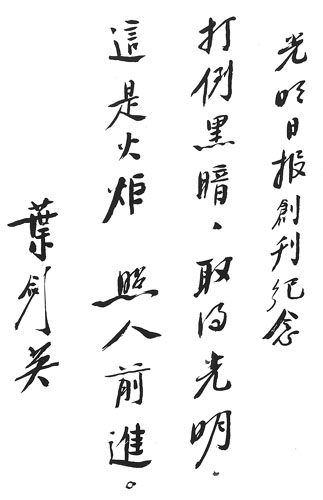 光明日报創刊纪念
打倒黑暗，取得光明．
這是火炬　照人前進。
葉剑英